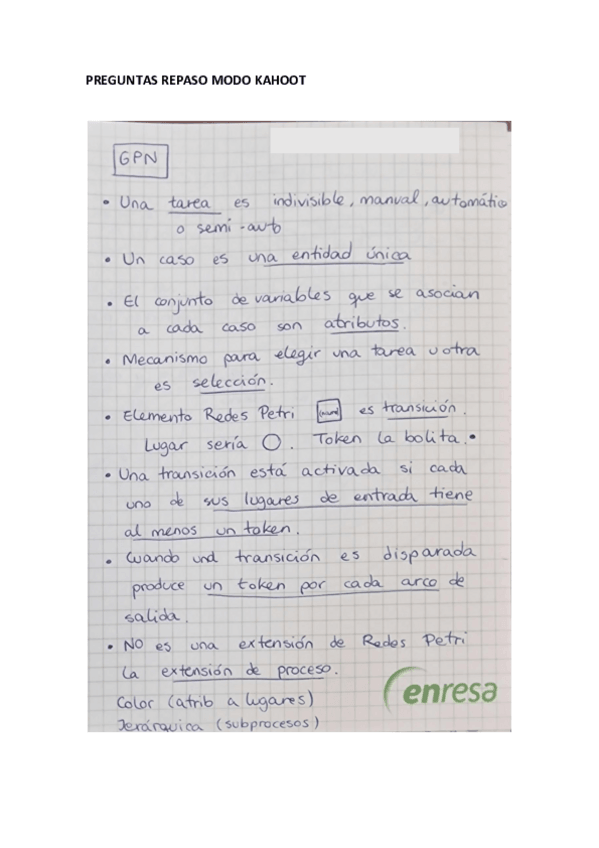 PREGUNTAS REPASO MODO KAHOOT
GPN
• Una tarea es indivisible, manual, automático
o semi-auto
• Un caso es una entidad única
• El conjunto de variables que se asocian
a cada caso son atributos.
• Mecanismo para elegir una tarea u otra
es selección.
• Elemento Redes Petri es transición.
Lugar sería O. Token la bolita.•
• Una transición está activada si cada
uno de sus lugares de entrada tiene
al menos un token.
• Cuando una transición es disparada
produce un token por cada arco de
salida.
• NO es una extensión de Redes Petri
la extensión de proceso.
Color (atrib a lugares)
Jerárquica (subprocesos)
enresa